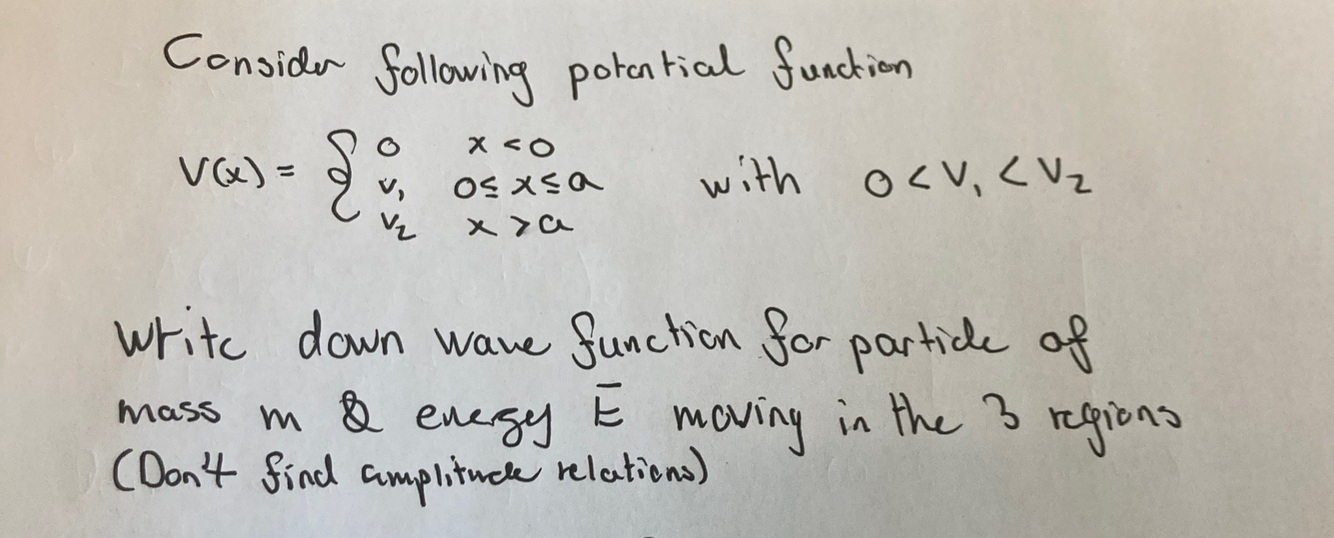 Consider following potential function
V(x) = { 0 x < 0
V₁ 0 ≤ x ≤ a with 0 < V₁ < V₂
V₂ x > a
Write down wave function for particle of
mass m & energy E moving in the 3 regions
(Don't find amplitude relations)